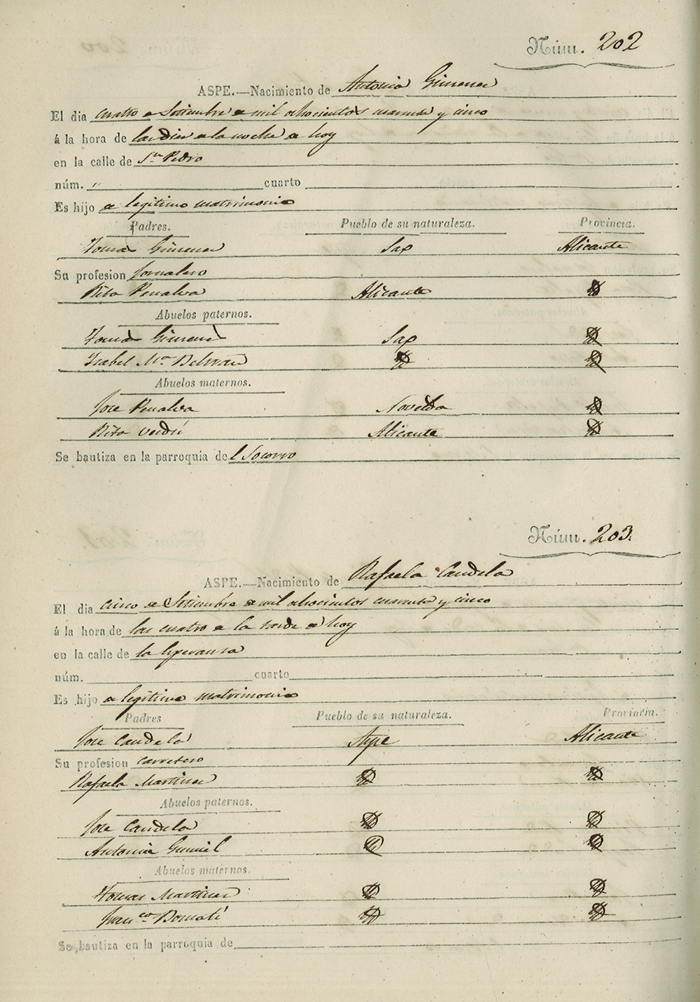 Núm. 202
ASPE.—Nacimiento de Antonio Gimenez
El dia cuatro de Setiembre de mil ochocientos cuarenta y cinco
á la hora de las diez de la noche de hoy
en la calle de Sn Pedro
núm. " cuarto
Es hijo de legitimo matrimonio
Padres. Pueblo de su naturaleza. Provincia.
Tomás Gimenez Sax Alicante
Su profesion Jornalero
Rita Penalva Alicante
Abuelos paternos.
Tomás Gimenez Sax
Isabel Mª Beltran
Abuelos maternos.
Jose Penalva Novelda
Rita Verdú Alicante
Se bautiza en la parroquia de l Socorro
Núm. 203.
ASPE.—Nacimiento de Rafaela Candela
El dia cinco de Setiembre de mil ochocientos cuarenta y cinco
á la hora de las cuatro de la tarde de hoy
en la calle de la Esperanza
núm. cuarto
Es hijo de legitimo matrimonio
Padres Pueblo de su naturaleza. Provincia.
Jose Candela Aspe Alicante
Su profesion carretero
Rafaela Martinez
Abuelos paternos.
Jose Candela
Antonia
Abuelos maternos.
Tomas Martinez
Franco
Se bautiza en la parroquia de